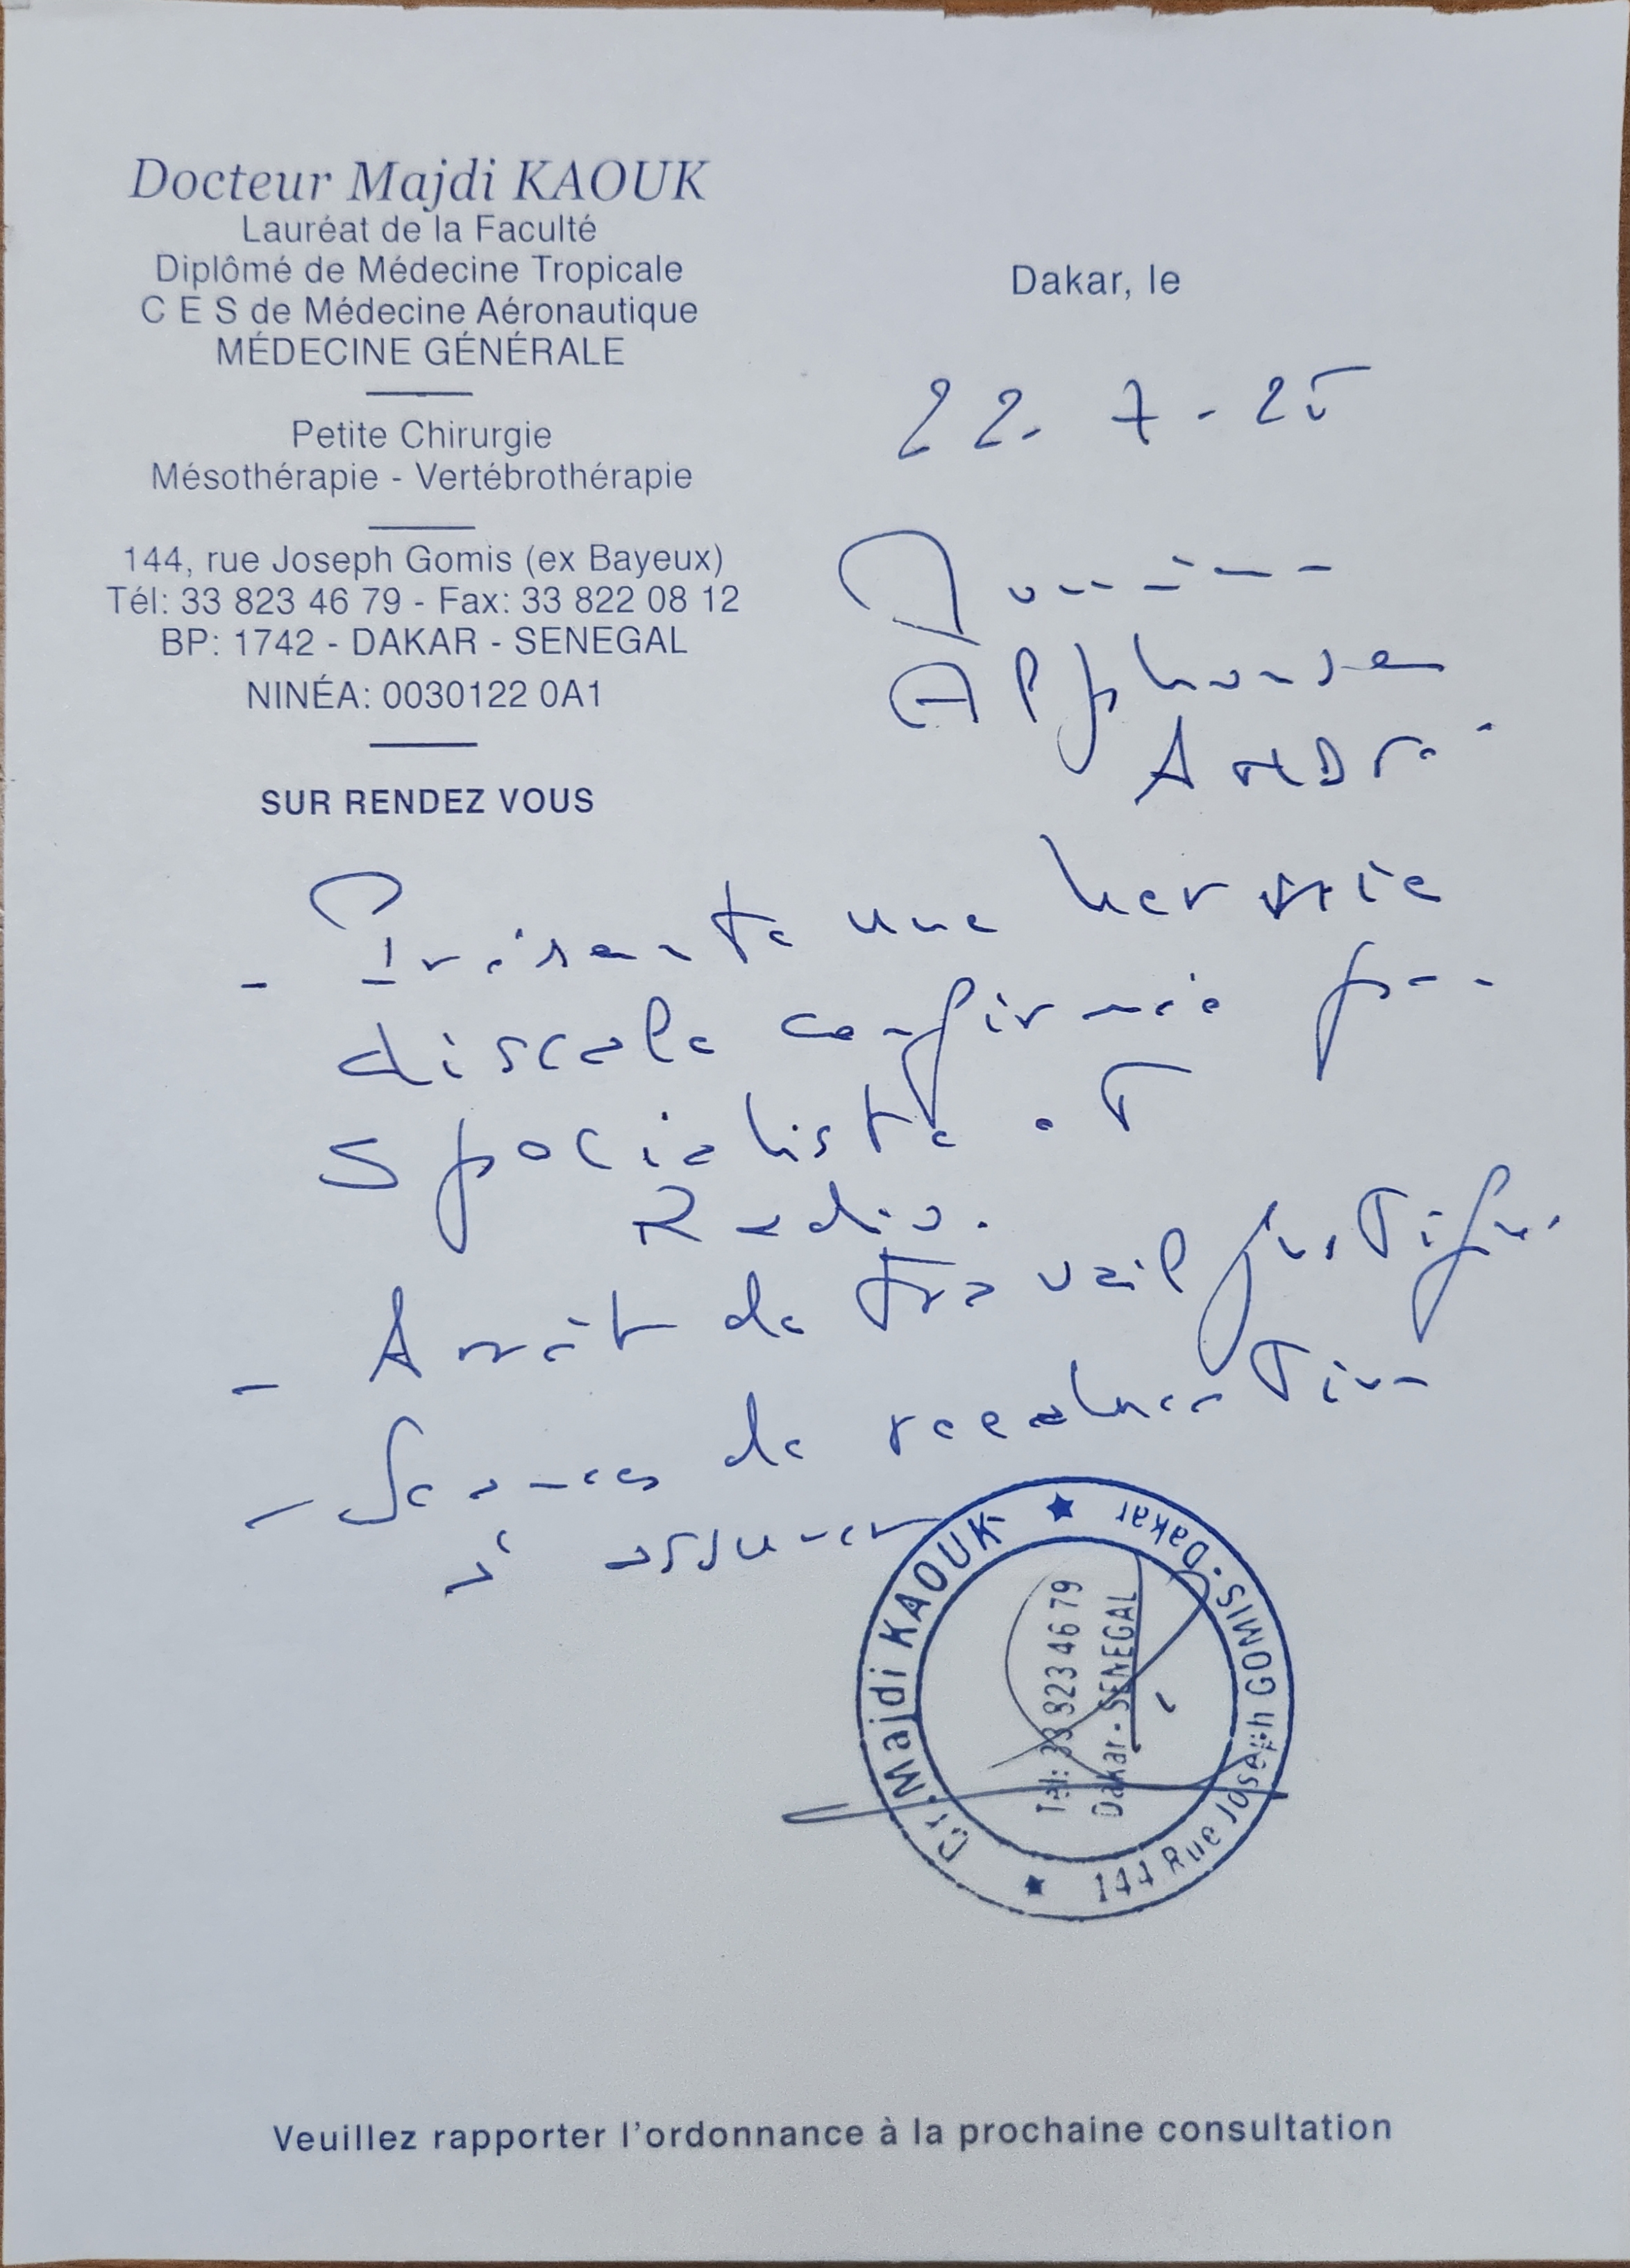 Docteur Majdi KAOUK
Lauréat de la Faculté
Diplômé de Médecine Tropicale
C E S de Médecine Aéronautique
MÉDECINE GÉNÉRALE
Petite Chirurgie
Mésothérapie - Vertébrothérapie
144, rue Joseph Gomis (ex Bayeux)
Tél: 33 823 46 79 - Fax: 33 822 08 12
BP: 1742 - DAKAR - SENEGAL
NINÉA: 0030122 0A1
SUR RENDEZ VOUS
Dakar, le
22. 7 - 25
Alphonse
ANDRé
- Présente une hernie
discale confirmée par
spécialiste et
Radio.
- Arrêt de travail justifié
- Séances de reeducation
à assurer
Dr. Majdi KAOUK ★ 144 Rue Joseph GOMIS - Dakar ★
Tél: 33 823 46 79
Dakar - SENEGAL
Veuillez rapporter l'ordonnance à la prochaine consultation